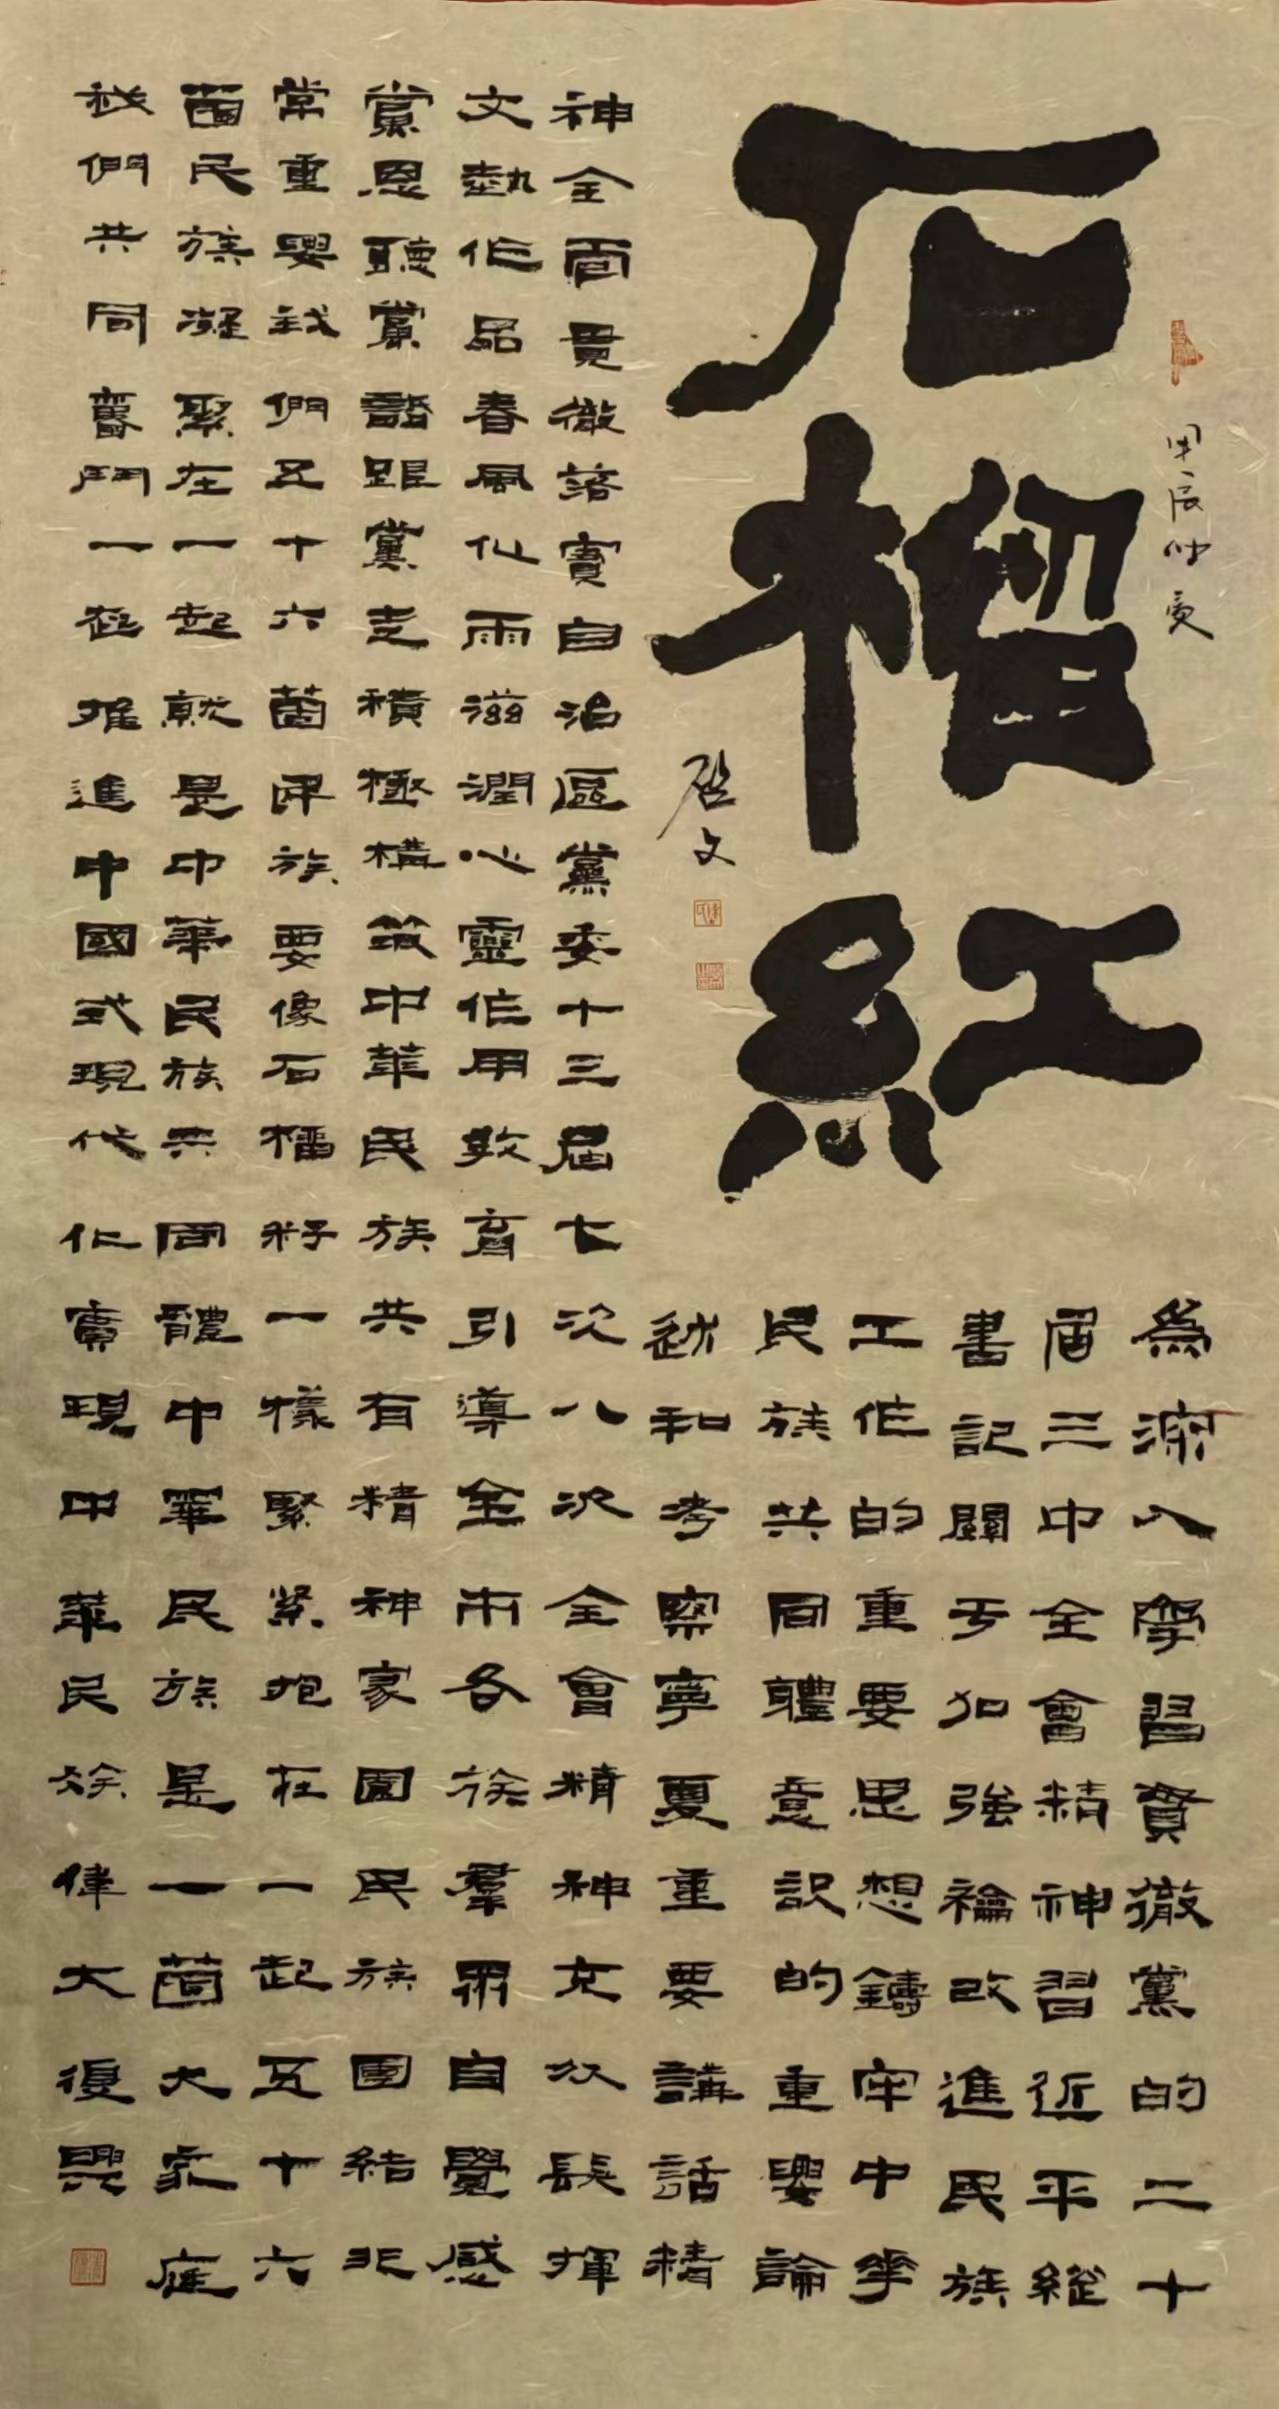 石榴紅
甲辰仲夏
啟文
為深入學習貫徹黨的二十
届三中全會精神習近平總
書記關于加強和改進民族
工作的重要思想鑄牢中華
民族共同體意識的重要論
述和考察寧夏重要講話精
神全面貫徹落實自治區黨委十三届七次八次全會精神充分發揮
文藝作品春風化雨滋潤心靈作用教育引導全市各族羣衆自覺感
黨恩聽黨話跟黨走積極構築中華民族共有精神家園民族團結非
常重要我們五十六箇民族要像石榴籽一樣緊緊抱在一起五十六
箇民族凝聚在一起就是中華民族共同體中華民族是一箇大家庭
我們共同奮鬥一起推進中國式現代化實現中華民族偉大復興